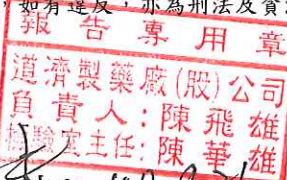 ,如有違反,亦為刑法及貿
報告專用章
道濟製藥廠(股)公司
負責人:陳飛雄
檢驗室主任:陳華雄